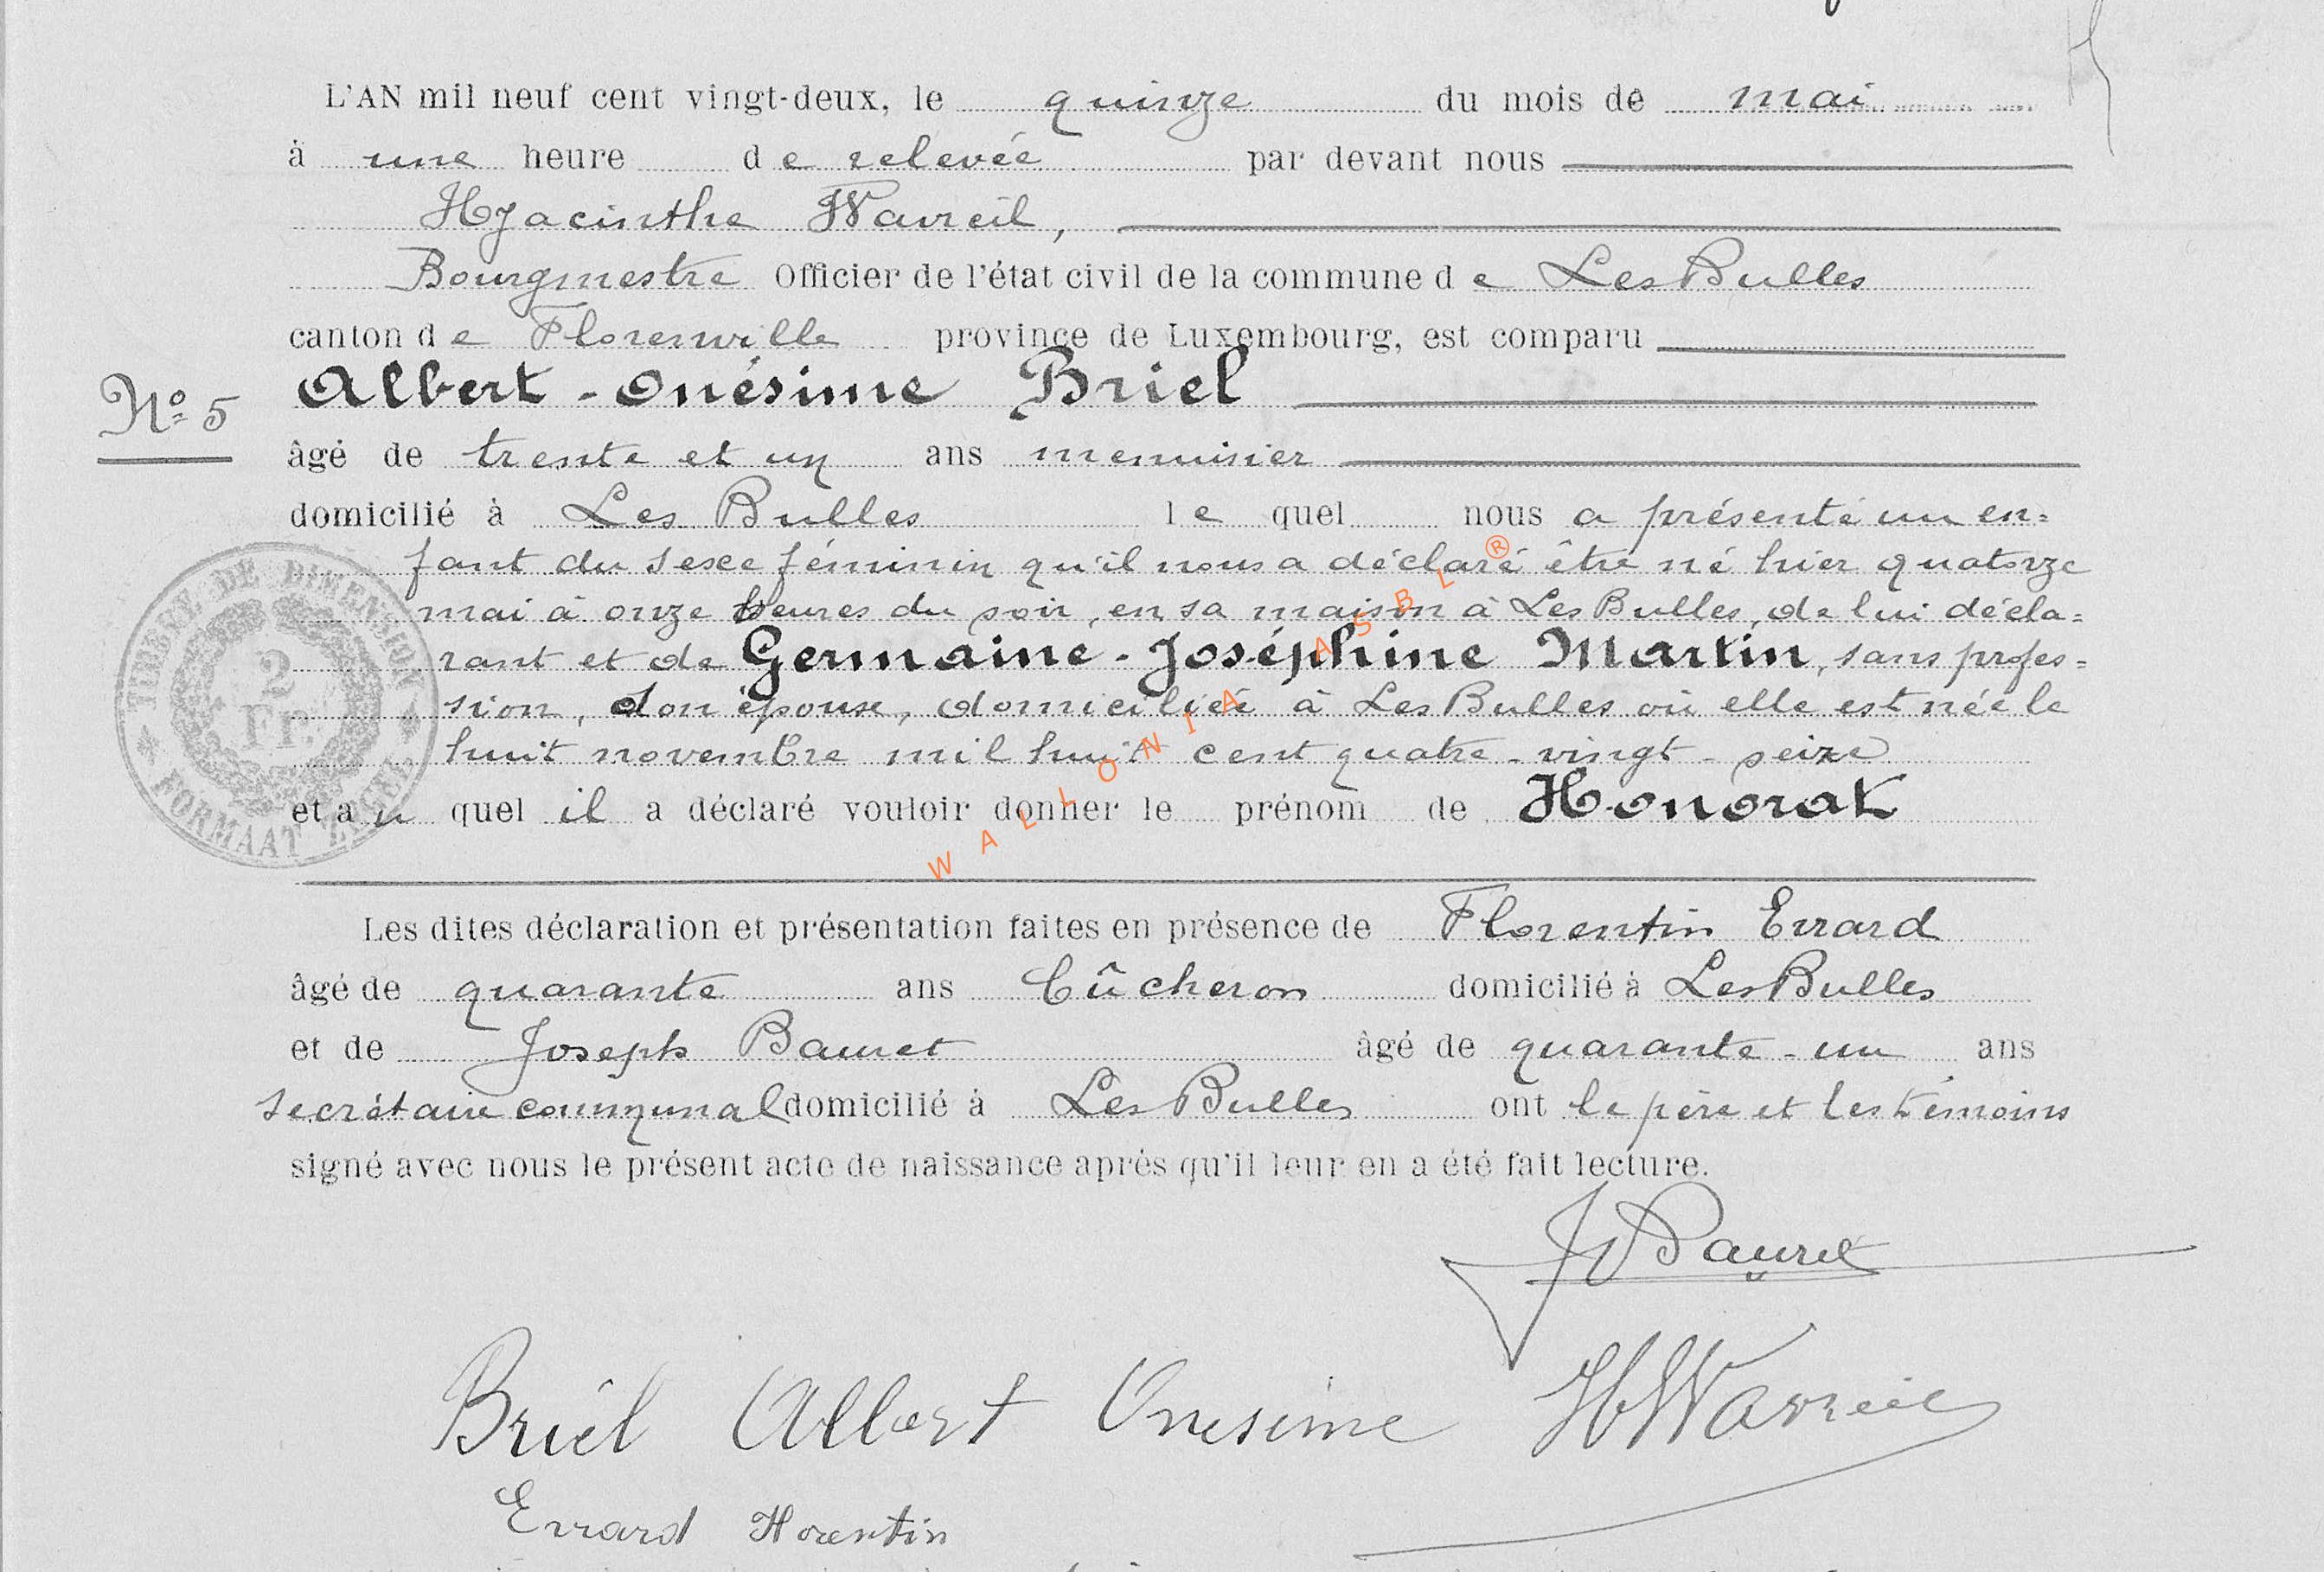 L'AN mil neuf cent vingt-deux, le quinze du mois de mai
à une heure de relevée par devant nous
Hyacinthe Wavreil,
Bourgmestre Officier de l'état civil de la commune de Les Bulles
canton de Florenville province de Luxembourg, est comparu
Albert-Onésime Briel
No 5
âgé de trente et un ans menuisier
domicilié à Les Bulles lequel nous a présenté un en=
fant du sexe féminin qu'il nous a déclaré être né hier quatorze
mai à onze heures du soir, en sa maison à Les Bulles, de lui décla=
rant et de Germaine-Joséphine Martin, sans profes=
sion, son épouse, domiciliée à Les Bulles où elle est née le
huit novembre mil huit cent quatre-vingt-seize
et auquel il a déclaré vouloir donner le prénom de Honorat
TIMBRE DE DIMENSION
2
Fr.
FORMAAT ZEGEL
WALLONIA ASBL ®
Les dites déclaration et présentation faites en présence de Florentin Errard
âgé de quarante ans bûcheron domicilié à Les Bulles
et de Joseph Bauret âgé de quarante-un ans
secrétaire communal domicilié à Les Bulles ont le père et les témoins
signé avec nous le présent acte de naissance après qu'il leur en a été fait lecture.
J Bauret
Briel Albert Onesime HWavreil
Errard Florentin